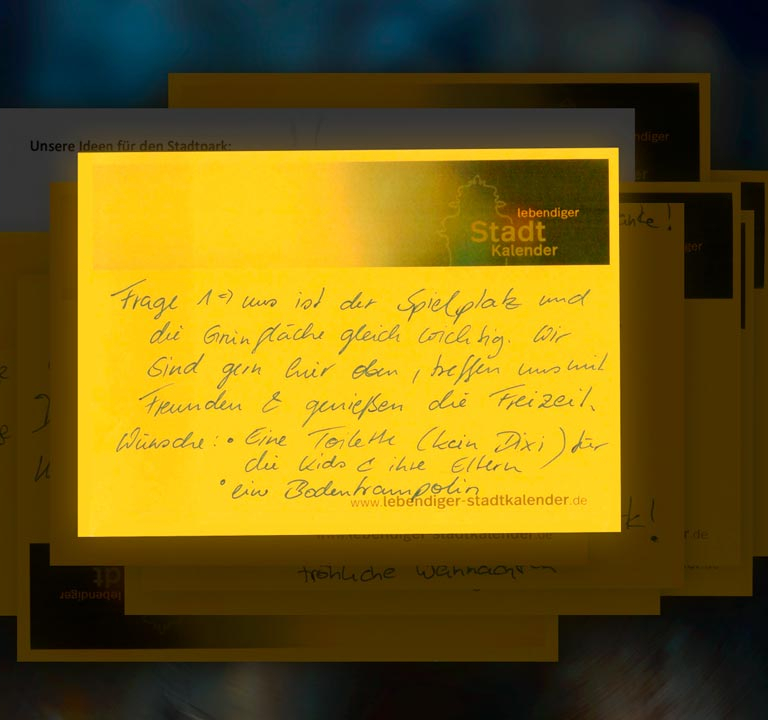 Unsere Ideen für den Stadtpark:
lebendiger
Stadt
Kalender
Frage 1 => uns ist der Spielplatz und
die Grünfläche gleich wichtig. Wir
Sind gern hier oben, treffen uns mit
Freunden & genießen die Freizeit.
Wünsche: • Eine Toilette (kein Dixi) für
die Kids & ihre Eltern
• ein Bodentrampolin
www.lebendiger-stadtkalender.de
www.lebendiger-stadtkalender.de
fröhliche Weihnachten
lebendiger